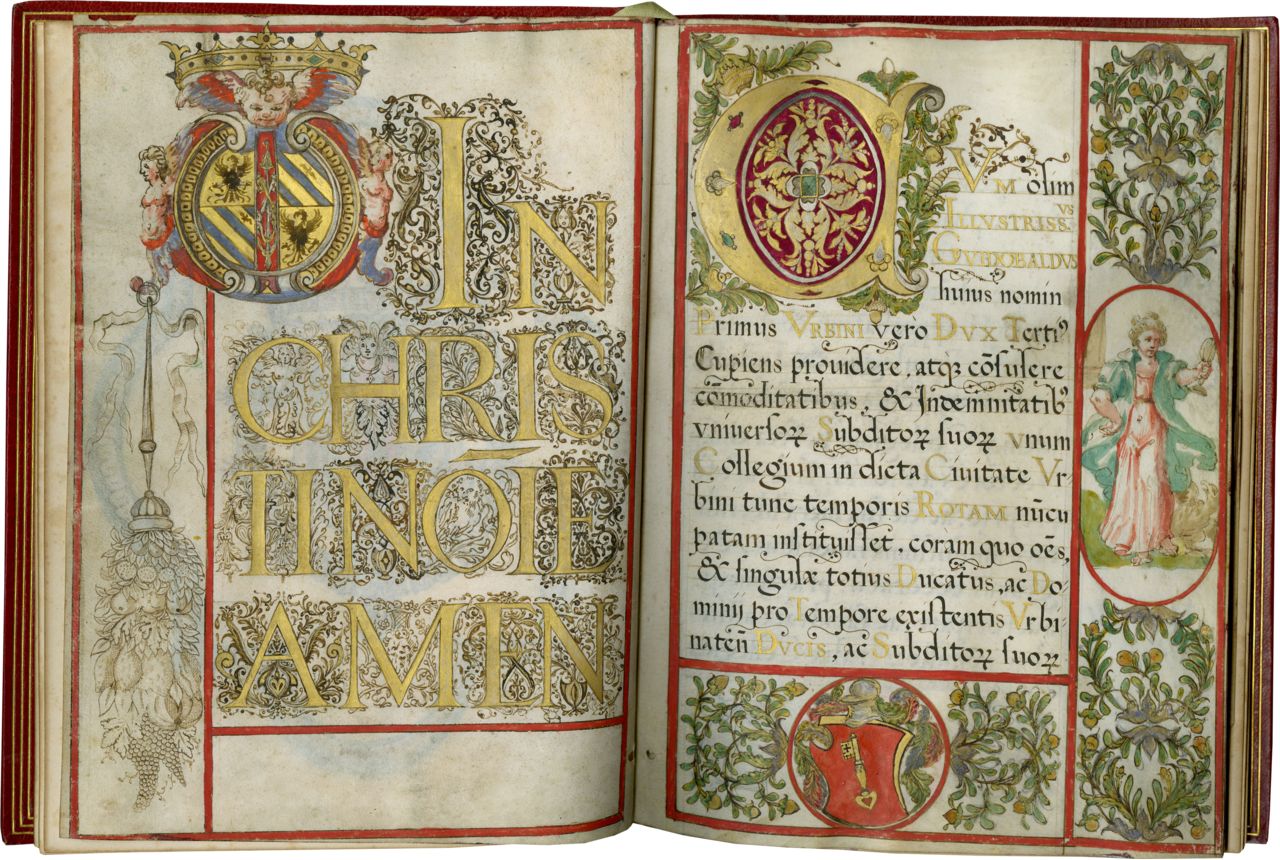 IN
CHRIS
TI NŌIE
AMEN
CVM olim
ILLVSTRISS.VS
GVIDOBALDVS
huius nomin
Primus VRBINI vero DVX Terti⁹
Cupiens prouidere, atq; cōsulere
cōmoditatibus, & Indemnitatib⁹
vniuersoꝝ Subditoꝝ suoꝝ vnum
Collegium in dicta Ciuitate Vr-
bini tunc temporis ROTAM nūcu
patam instituisset, coram quo oēs,
& singulæ totius Ducatus, ac Do-
minij pro Tempore existentis Vrbi-
nateñ DVCIS, ac Subditoꝝ suoꝝ